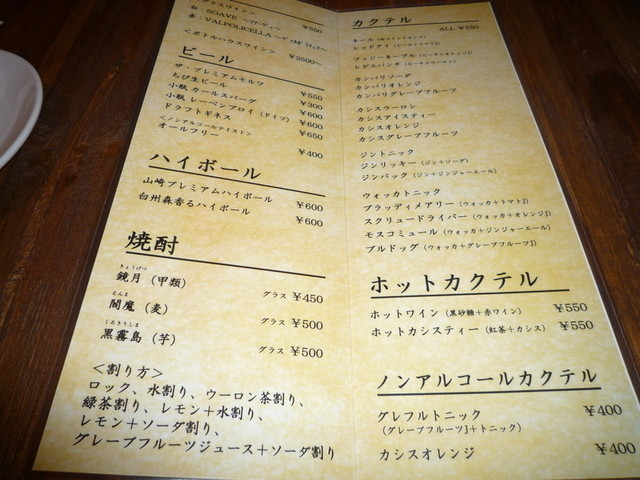 グラスワイン＞
白：SOAVE
赤：VALPOLICELLA
¥550
＜ボトルハウスワイン＞ ¥2500～
ビール
ザ・プレミアムモルツ ¥550
ちび生ビール ¥300
小瓶 カールスバーグ ¥600
小瓶 レーベンブロイ（ドイツ） ¥600
ドラフトギネス ¥650
＜ノンアルコールテイスト＞
オールフリー ¥400
ハイボール
山崎プレミアムハイボール ¥600
白州森香るハイボール ¥600
焼酎
きょうげつ
鏡月（甲類） グラス ¥450
えんま
閻魔（麦） グラス ¥500
くろきりしま
黒霧島（芋） グラス ¥500
＜割り方＞
ロック、水割り、ウーロン茶割り、
緑茶割り、レモン＋水割り、
レモン＋ソーダ割り、
グレープフルーツジュース＋ソーダ割り
カクテル
ALL ¥550
キール
レッドアイ
ファジーネーブル
レゲエパンチ
カンパリソーダ
カンパリオレンジ
カンパリグレープフルーツ
カシスウーロン
カシスアイスティー
カシスオレンジ
カシスグレープフルーツ
ジントニック
ジンリッキー（ジン＋ソーダ）
ジンバック（ジン＋ジンジャーエール）
ウォッカトニック
ブラッディメアリー（ウォッカ＋トマトJ）
スクリュードライバー（ウォッカ＋オレンジJ）
モスコミュール（ウォッカ＋ジンジャーエール）
ブルドッグ（ウォッカ＋グレープフルーツJ）
ホットカクテル
ホットワイン（黒砂糖＋赤ワイン） ¥550
ホットカシスティー（紅茶＋カシス） ¥550
ノンアルコールカクテル
グレフルトニック ¥400
（グレープフルーツJ＋トニック）
カシスオレンジ ¥400